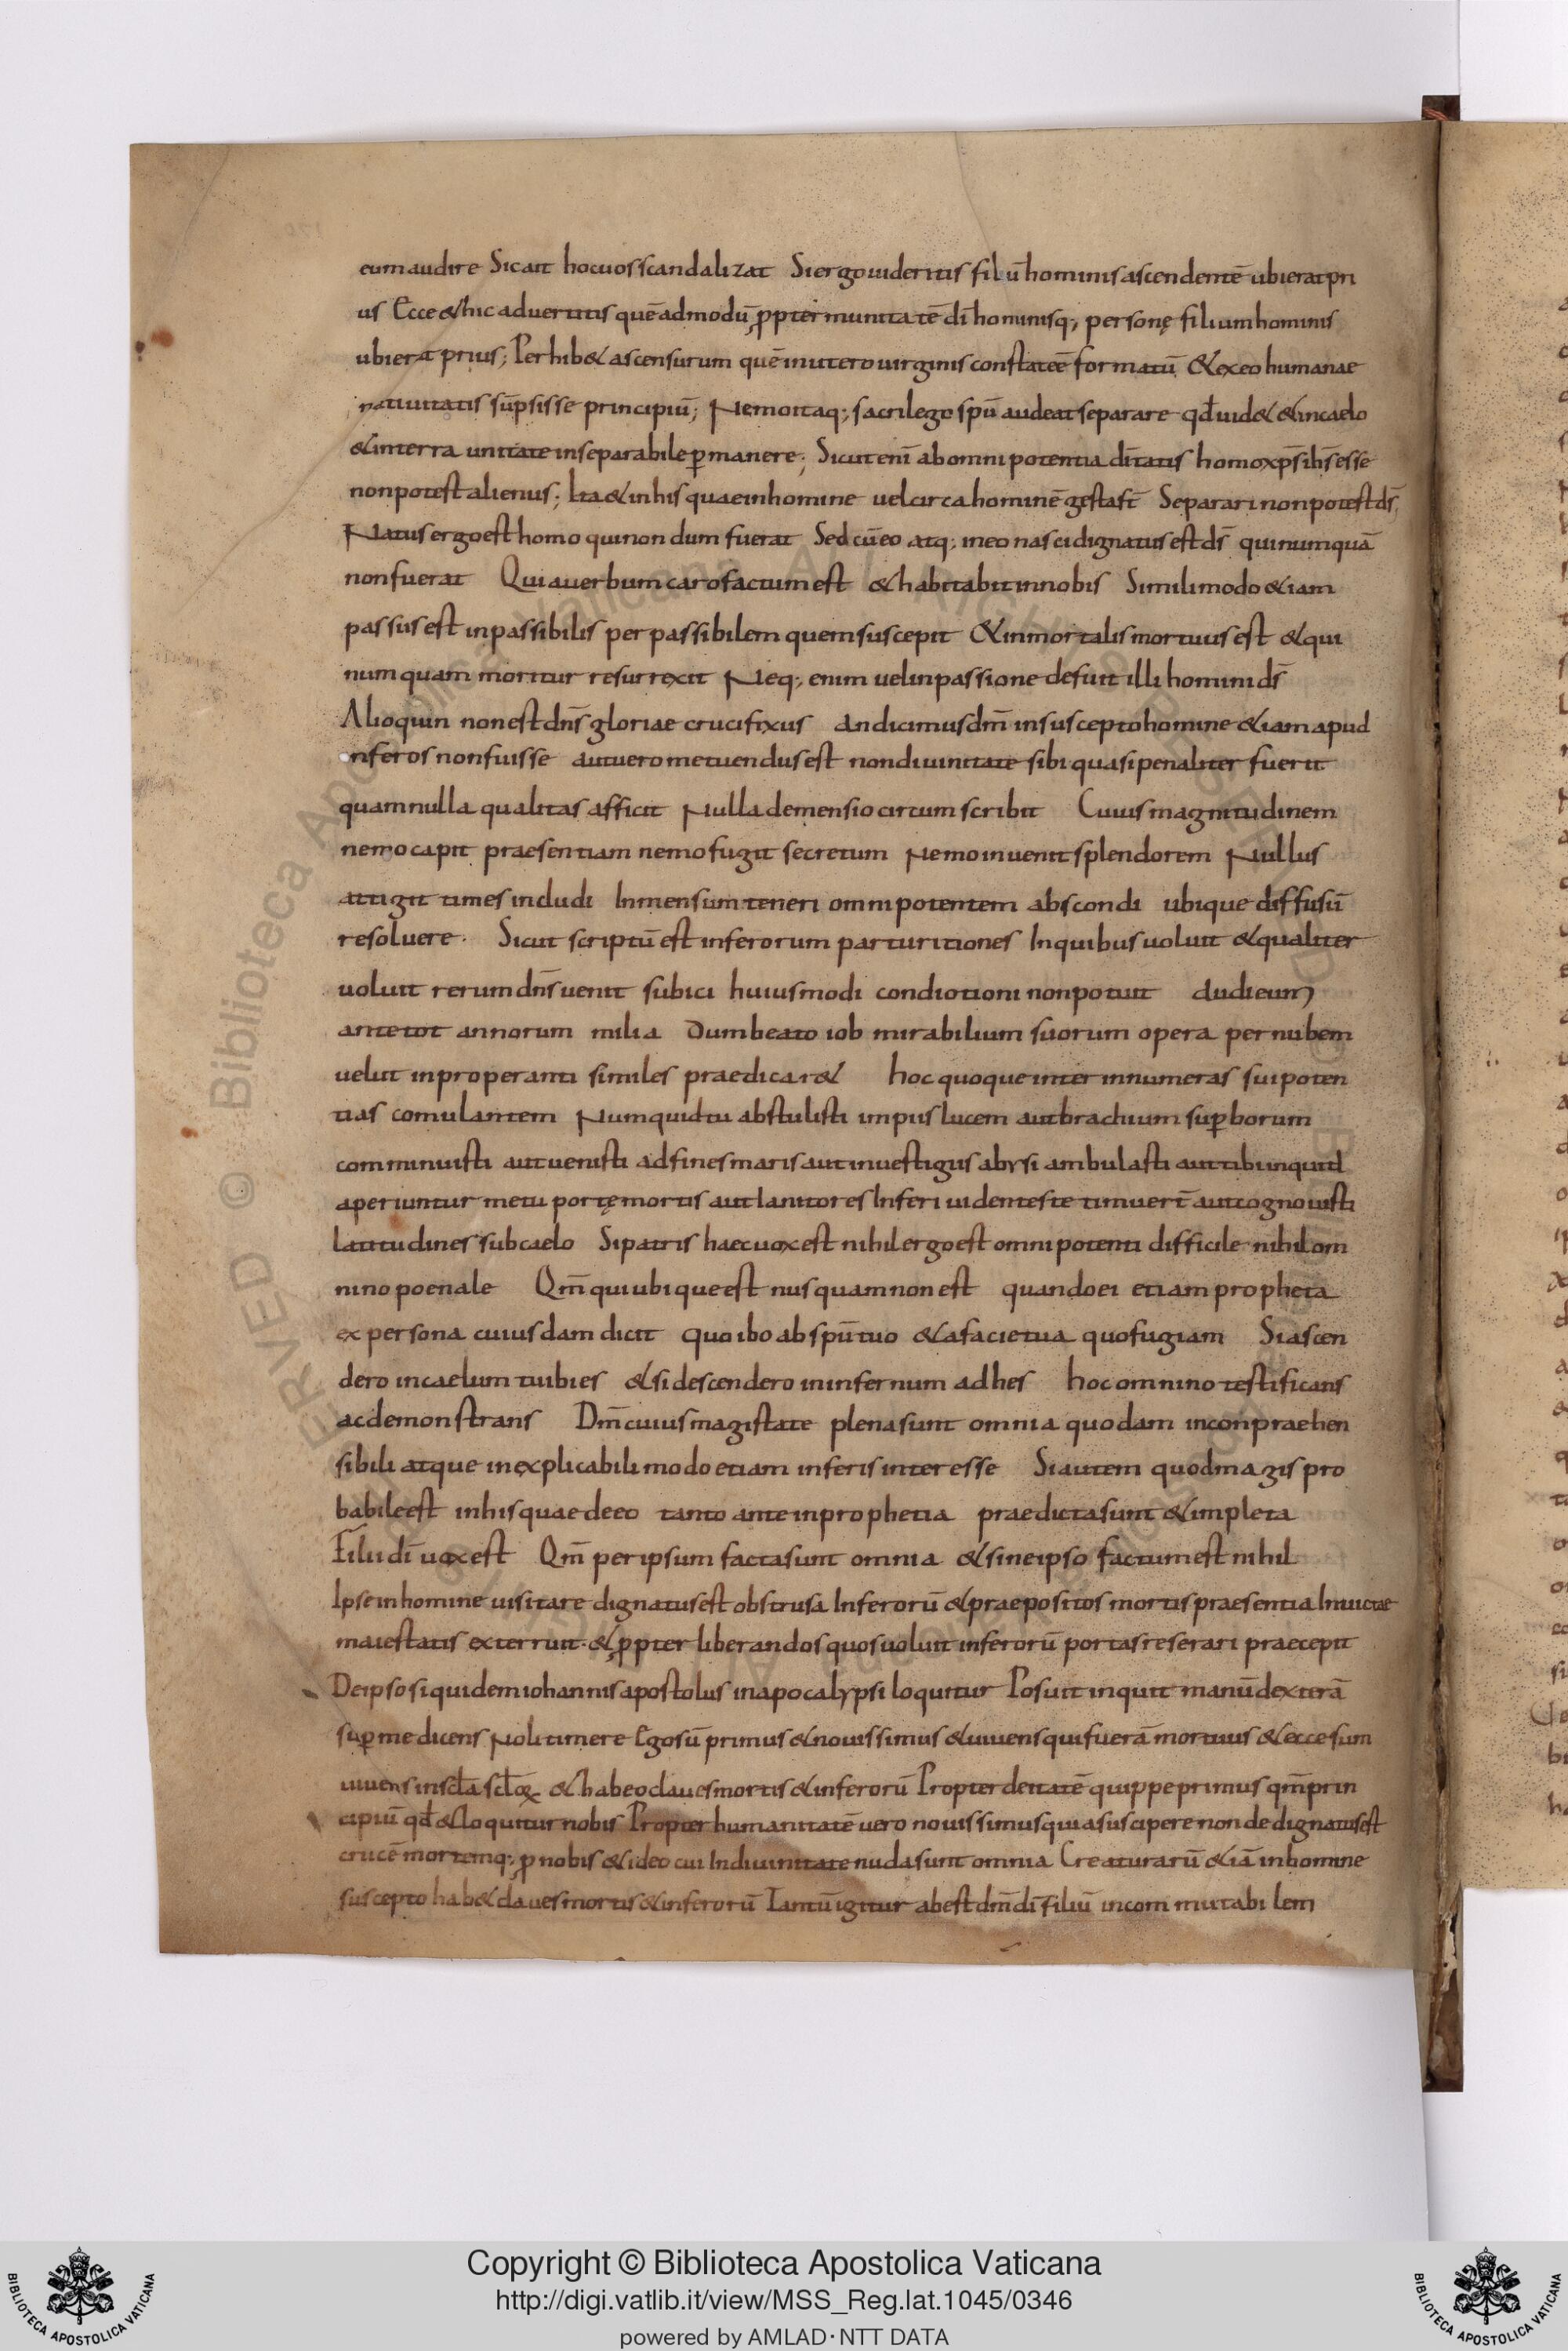 eum audire Sic ait hoc uos scandalizat Si ergo uideritis filiū hominis ascendentē ubi erat pri
us Ecce & hic aduertitis quēadmodū ꝓpter munitatē dī hominisq; personę filium hominis
ubi erat prius; Perhib& ascensurum quē in utero uirginis constat eē formatū & ex eo humanae
natiuitatis sūpsisse principiū; Nemo itaq; sacrilego spū audeat separare qđ uid& & in caelo
& in terra unitate inseparabile ꝑmanere; Sicut enī ab omni potentia dītatis homo xp̄s ih̄s esse
non potest alienus; Ita & in his quae in homine uel circa hominē gesta st̄ Separari non potest ds̄;
Natus ergo est homo qui nondum fuerat Sed cū eo atq; in eo nasci dignatus est ds̄ qui numquā
non fuerat Quia uerbum caro factum est & habitabit in nobis Simili modo &iam
passus est inpassibilis per passibilem quem suscepit & inmortalis mortuus est & qui
numquam moritur resurrexit Neq; enim uel in passione defuit illi homini ds̄
Alioquin non est dn̄s gloriae crucifixus An dicimus dm̄ in suscepto homine &iam apud
inferos non fuisse aut uero metuendus est non diuinitate sibi quasi penaliter fuerit
quam nulla qualitas afficit Nulla demensio circumscribit Cuius magnitudinem
nemo capit praesentiam nemo fugit secretum Nemo inuenit splendorem Nullus
attigit times includi Inmensum teneri omnipotentem abscondi ubique diffusū
resoluere. Sicut scriptū est inferorum parturitiones In quibus uoluit & qualiter
uoluit rerum dn̄s uenit subici huiusmodi condiotioni non potuit Audi eum
ante tot annorum milia Dum beato iob mirabilium suorum opera per nubem
uelut inproperanti similes praedicar& hoc quoque inter innumeras sui poten
tias comulantem Numquid tu abstulisti impiis lucem aut brachium suꝑborum
comminuisti aut uenisti ad fines maris aut in uestigiis abysi ambulasti aut tibi inquid
aperiuntur metu portę mortis aut Ianitores Inferi uidentes te timuer̄t aut cognouisti
latitudines sub caelo Si patris haec uox est nihil ergo est omnipotenti difficile nihil om
nino poenale Qm̄ qui ubique est nusquam non est quando ei etiam propheta
ex persona cuiusdam dicit quo ibo ab spū tuo & a facie tua quo fugiam Si ascen
dero in caelum tu ibi es & si descendero in infernum adhes hoc omnino testificans
ac demonstrans Dm̄ cuius magistate plena sunt omnia quodam inconpraehen
sibili atque inexplicabili modo etiam inferis interesse Si autem quod magis pro
babile est in his quae de eo tanto ante in prophetia praedicta sunt & impleta
Filii dī uox est Qm̄ per ipsum facta sunt omnia & sine ipso factum est nihil
Ipse in homine uisitare dignatus est obstrusa Inferorū & praepositos mortis praesentia Inuictae
maiestatis exterruit. & ꝓpter liberandos quos uoluit inferorū portas reserari praecepit
De ipso siquidem iohannis apostolus in apocalypsi loquitur Posuit inquit manū dexterā
suꝑ me dicens Noli timere Ego sū primus & nouissimus & uiuens qui fuerā mortuus & ecce sum
uiuens in scl̄a scl̄oꝝ & habeo claues mortis & inferorū Propter deitatē quippe primus qm̄ prin
cipiū qđ & loquitur nobis Propter humanitatē uero nouissimus quia suscipere non dedignatus est
crucē mortemq; ꝓ nobis & ideo cui In diuinitate nuda sunt omnia Creaturarū &iā in homine
suscepto hab& claues mortis & inferorū Tantū igitur abest dm̄ dī filiū incommutabilem